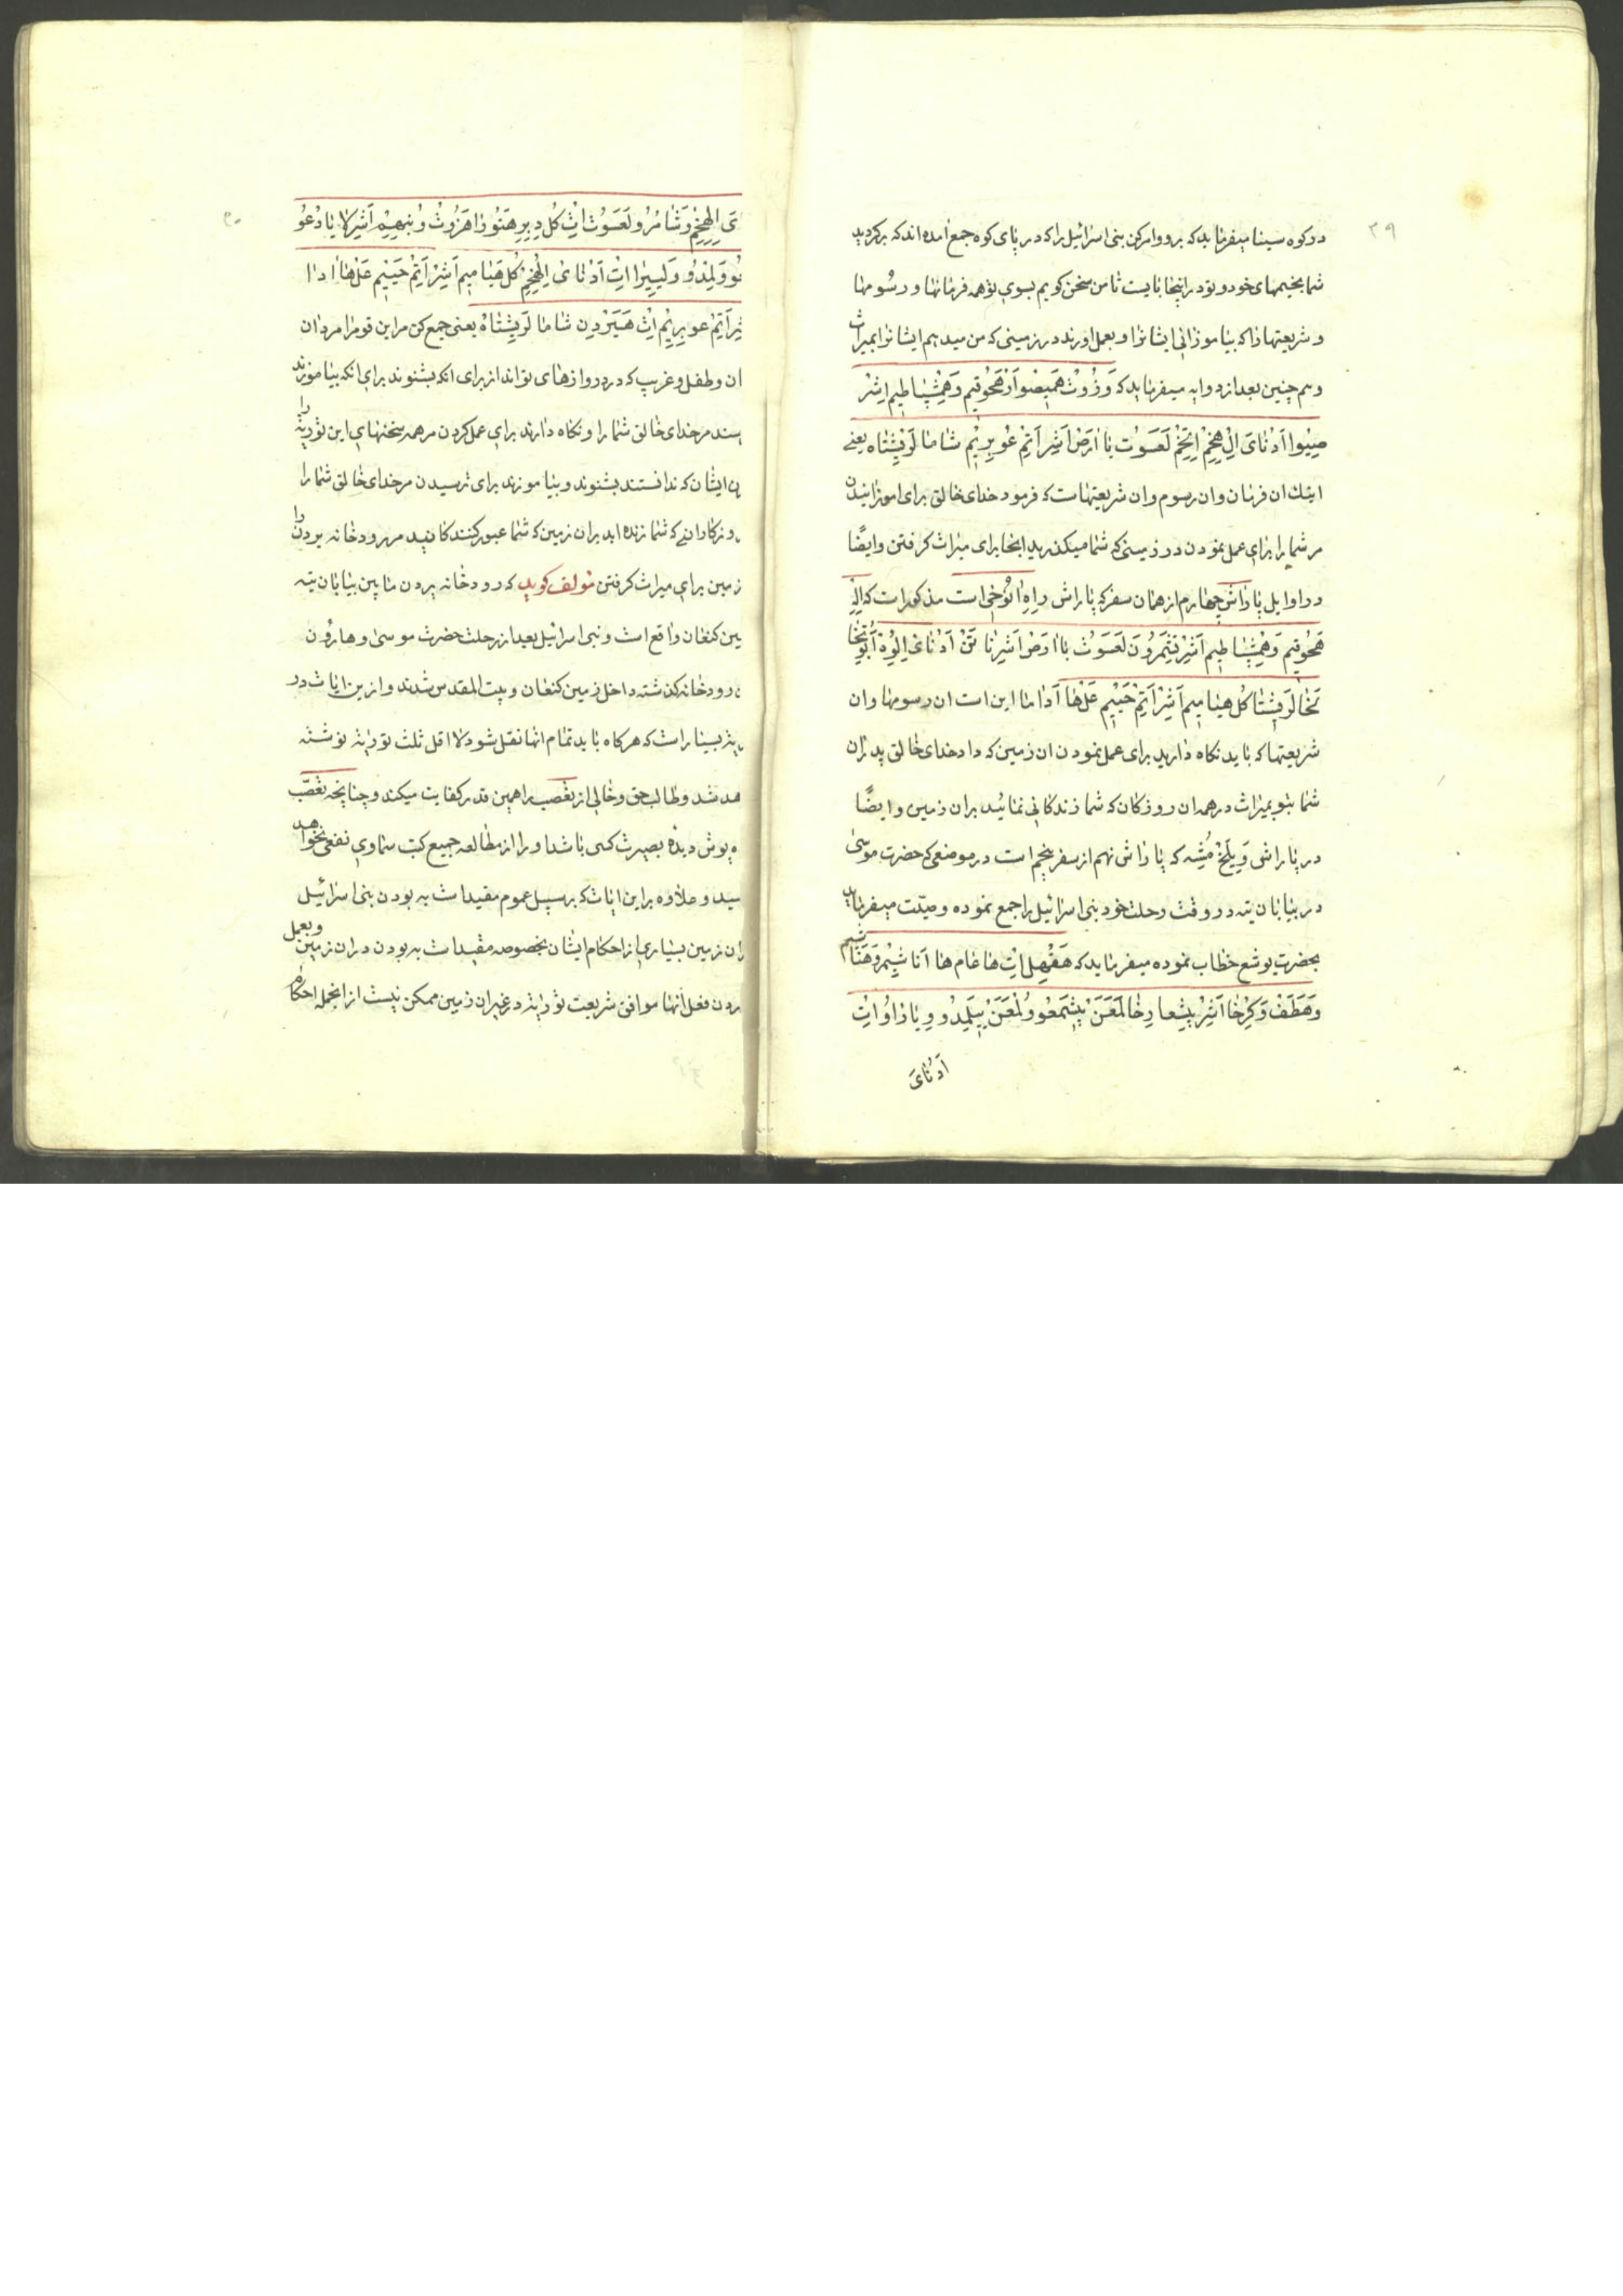 ۳۹
در کوه سینا میفرماید که برو و امر کن بنی اسرائیل را که در پای کوه جمع امده اند که برکردید
شما بخیمهای خود و تو در اینجا بایست تا من سخن کویم بسوی تو همه فرمانها و رسومها
و شریعتها را که بیاموزانی ایشانرا و بعمل اورند در زمینی که من میدهم ایشانرا بمیراث
و هم چنین بعد از دو ایه میفرماید که وَزُوتْ هَمِیصْوا اَزْهَحُوقِیم وَهَمِیشْپاطِیم اَشِرْ
صِیْوا اَدُنایَ اِلُهِخِمْ اِتْخِمْ لَعَسَوُت بااٰرَضْ اَشِر اَتِمْ عُوبِرِیْم شاما لَرِیشْتاه یعنی
اینک ان فرمان و ان رسوم و ان شریعتهاست که فرمود خدای خالق برای اموزانیدن
مر شما را برای عمل نمودن در زمینی که شما میکذرید انجا برای میراث کرفتن وایضًا
در اوایل پاراش چهارم از همان سفر که پاراش راِهِ اٰنُوخِی است مذکور است که اِلِهْ
هَحُوقِیم وَهَمِیشْپاطِیم اَشِر تِشْمِرُونَ لَعَسَوُتْ بااٰرَضْ اَشِرْ ناتَنْ اَدُنایَ اِلُوِهْ اَبُوتِخا
لَخا لَرِیشْتا کُل هَیامِیم اَشِرْ اَتِمْ حَیِیم عَلْ ها اَداما این است ان رسومها وان
شریعتها که باید نکاه دارید برای عمل نمودن ان زمین که داد خدای خالق پدران
شما بتو بمیراث در همه ان روزکان که شما زندکانی نمائید بران زمین وایضًا
در پاراشی وَیِلِخْ مُشِه که پاراش نهم از سفر پنجم است در موضعی که حضرت موسی
در بیابان تیه در وقت رحلت خود بنی اسرائیل را جمع نموده وصیّت میفرماید
بحضرت یوشع خطاب نموده میفرماید که هَقْهِل اِتْ هاعام هااَناشِیْم وَهَناشیم
وَهَطَفْ وَکِرْخا اَشِرْ بِیشْعارِخا لَمَعَنْ یِیشْمَعُو وُلْمَعَنْ یِیلْمِدُو وِیارَاوُ اِتْ
اَدُنایَ
۴۰
یَ اِلُهِخِمْ وَشامْرُو لَعَسَوُت اِتْ کُل دِبِرِ هَتُورا هَزُوتْ وُبنِهِیِم اَشِر لا یادْعُو
عُو وَلمْدُو وَلیِیرا اِتْ اَدُنایَ اِلُهِخِمْ کُل هَیامِیم اَشِرْ اَتِمْ حَیِیم عَلْ هااداما
شِرْ اَتِمْ عوبِرِیْم اِتْ هَیَرْدِن شاما لَرِیشْتاهْ یعنی جمع کن مر این قوم را مردان
ان و طفل و غریب که در دروازهای تواند از برای انکه بشنوند برای انکه بیاموزند
سند مر خدای خالق شما را و نکاه دارند برای عمل کردن مر همه سخنهای این توریة را
ن ایشان که ندانستند بشنوند و بیاموزند برای ترسیدن مر خدای خالق شما را
روزکارانی که شما زنده اید بران زمین که شما عبور کنندکانید مر رودخانه یردن را
زمین برای میراث کرفتن مولف کوید که رودخانه یردن مابین بیابان تیه
مین کنعان واقع است و بنی اسرائیل بعد از رحلت حضرت موسی و هارون
ن رودخانه کذشته داخل زمین کنعان و بیت المقدس شدند و ازین ایات در
یة بسیار است که هرکاه باید تمام انها نقل شود لااقل ثلث توریة نوشته
هد شد و طالب حق و خالی از تعصب را همین قدر کفایت میکند و چنانچه تعصّب
ه پوش دیده بصیرت کسی باشد او را از مطالعه جمیع کتب سماوی نفعی نخواهد
سید و علاوه بر این ایات که بر سبیل عموم مقید است به بودن بنی اسرائیل
ران زمین بسیاری از احکام ایشان بخصوصه مقید است به بودن در ان زمین و بعمل
ردن فعل انها موافق شریعت توریة در غیر ان زمین ممکن نیست از انجمله احکام